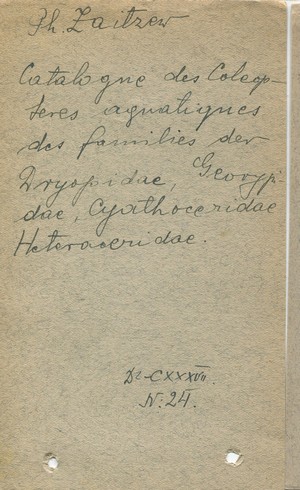 Ph. Zaitzew
Catalogue des Coleop-
teres aquatiques
des familles der
Dryopidae, Georyssi-
dae, Cyathoceridae
Heteroceridae.
Dr-CXXXVII.
N: 24.